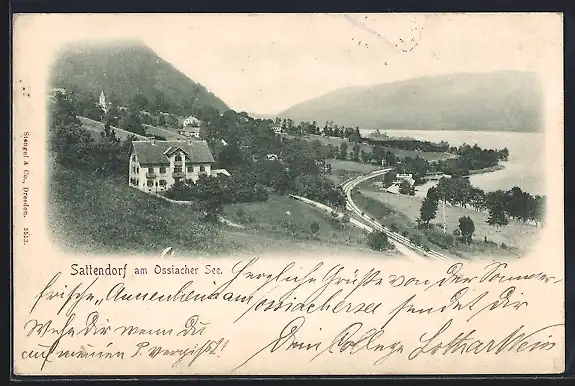 Stengel & Co., Dresden. 5513.
Sattendorf am Ossiacher See.
Herzliche Grüße von der Sommer-
frische „Annenheim am Ossiachersee sendet Dir
Wehe Dir wenn Du Dein College Lothar Wein
auf meinen P. vergißt!!